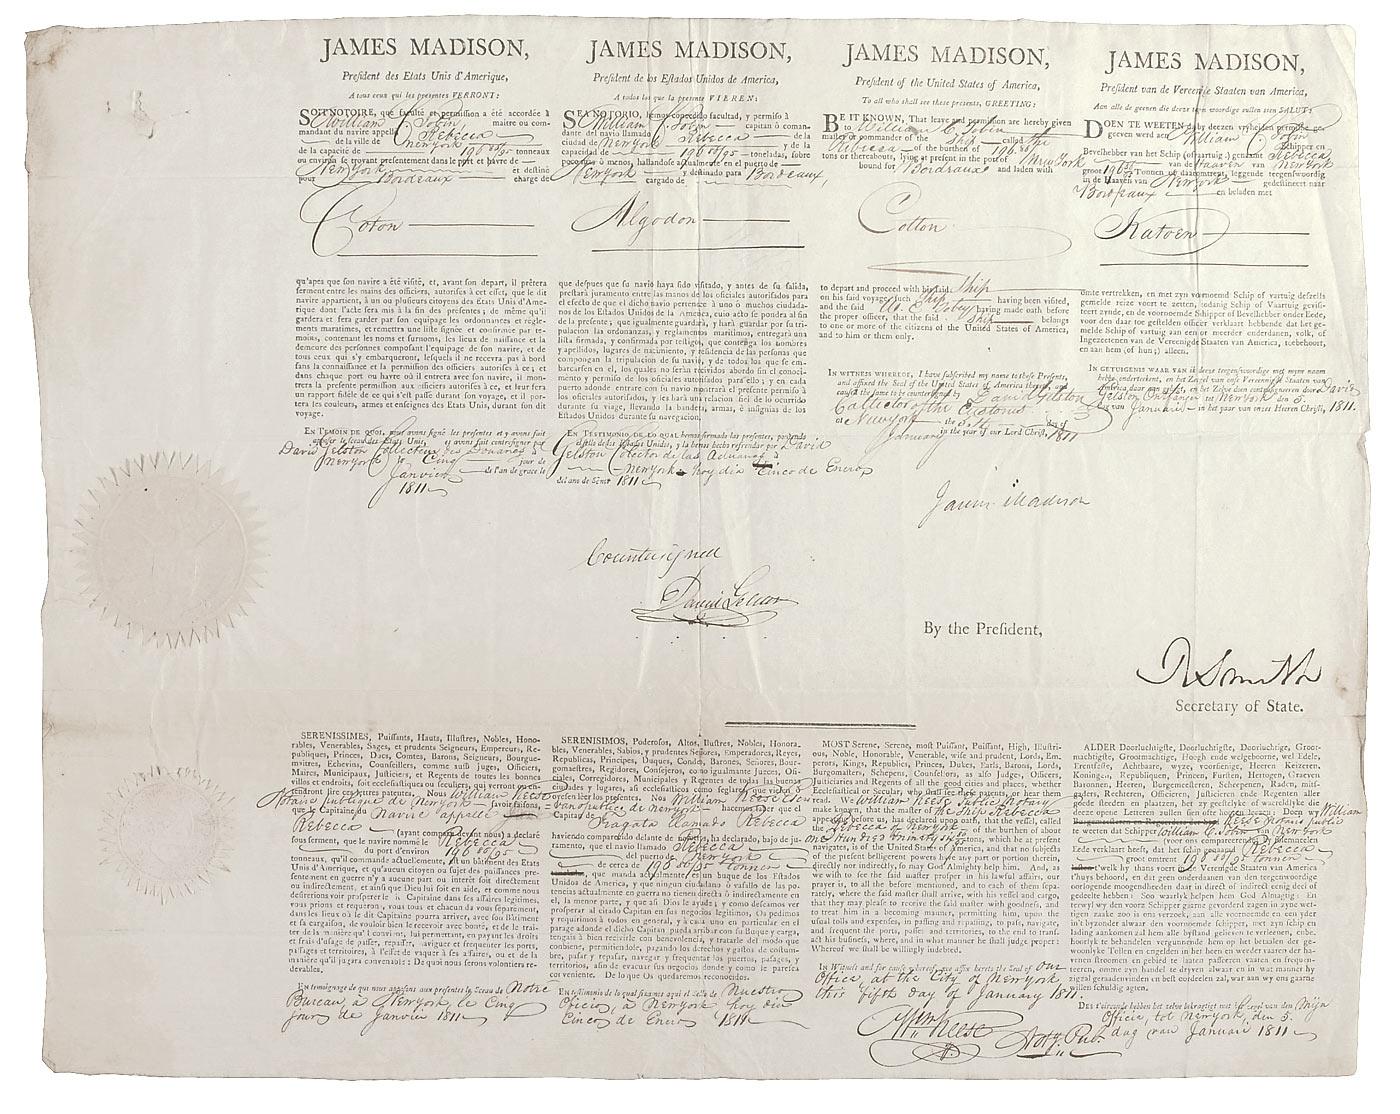 JAMES MADISON,
President des Etats Unis d'Amerique,
A tous ceux qui les presentes VERRONT:
SOIT NOTOIRE, que faculté et permission a été accordée à
William C Tobin maitre ou com-
mandant du navire appellé Rebecca
de la ville de Newyork
de la capacité de 196 88/95 tonneaux
ou environ se trouvant presentement dans le port et havre de
Newyork et destiné
pour Bordeaux chargé de
Coton
qu'apes que son navire a été visité, et, avant son depart, il prêtera
serment entre les mains des officiers, autorisés à cet effet, que le dit
navire appartient, à un ou plusieurs citoyens des Etats Unis d'Ame-
rique dont l'acte sera mis à la fin des presentes; de même qu'il
gardera et fera garder par son equipage les ordonnances et regle-
ments maritimes, et remettra une liste signée et confirmée par te-
moins, contenant les noms et surnoms, les lieux de naissance et la
demeure des personnes composant l'equipage de son navire, et de
tous ceux qui s'y embarqueront, lesquels il ne recevra pas à bord
sans la connaissance et la permission des officiers autorisés à ce; et
dans chaque port ou havre où il entrera avec son navire, il mon-
trera la presente permission aux officiers autorisés à ce, et leur fera
rapport fidele de ce qui s'est passé durant son voyage, et il por-
tera les couleurs, armes et enseignes des Etats Unis, durant son dit
voyage.
EN TEMOIN DE QUOI, nous avons signé les presentes et y avons fait
apposer le sceau des Etats Unis, et avons fait contresigner par
David Gelston Collecteur des Douanes à
Newyork le Cinq jour de
Janvier de l'an de grace le
1811
JAMES MADISON,
President de los Estados Unidos de America,
A todos los que la presente VIEREN:
SEA NOTORIO, hemos concedido facultad, y permiso à
William C. Tobin capitan ò coman-
dante del navio llamado Rebecca de la
ciudad de Newyork y de la
capacidad de 196 88/95 toneladas, sobre
pocomas ò menos, hallandose actualmente en el puerto de
Newyork y destinado para Bordeaux,
cargado de
Algodon
que despues que su navio haya sido visitado, y antes de su salida,
prestará juramento entre las manos de los oficiales autorizados para
el efecto de que el dicho navio pertenece à uno ò muchos ciudada-
nos de los Estados Unidos de la America, cuio acto se pondra al fin
de la presente; que igualmente guardará, y hará guardar por su tri-
pulacion las ordonanzas, y reglamentos maritimos, entregará una
lista firmada, y confirmada por testigos, que contenga los nombres
y apellidos, lugares de nacimiento, y residencia de las personas que
compongan la tripulacion de su navio, y de todos los que se em-
barcaren en el, los quales no serán recividos abordo sin el conoci-
miento y permiso de los oficiales autorizados para ello; y en cada
puerto adonde entrare con su navio mostrará el presente permiso à
los oficiales autorizados, y les hará una relacion fiel de lo ocurrido
durante su viage, llevando la bandera, armas, è insignias de los
Estados Unidos durante su navegacion.
EN TESTIMONIO DE LO QUAL hemos firmado las presentes, poniendo
el sello de los Estados Unidos, y la hemos hecho refrendar por David
Gelston Colector de las Aduanas à
Newyork hoy dia Cinco de Enero
del ano de Gracia 1811
JAMES MADISON,
President of the United States of America,
To all who shall see these presents, GREETING:
BE IT KNOWN, That leave and permission are hereby given
to William C. Tobin
master or commander of the Ship called the
Rebecca of the burthen of 196 88/95
tons or thereabouts, lying at present in the port of New York
bound for Bordeaux and laden with
Cotton
to depart and proceed with his said Ship
on his said voyage, such Ship having been visited,
and the said W. C. Tobin having made oath before
the proper officer, that the said Ship belongs
to one or more of the citizens of the United States of America,
and to him or them only.
IN WITNESS WHEREOF, I have subscribed my name to these Presents,
and affixed the Seal of the United States of America thereto, and
caused the same to be countersigned by David Gelston
Collector of the Customs
at Newyork the 5th day of
January in the year of our Lord Christ, 1811
JAMES MADISON,
President van de Vereenigde Staaten van America,
Aan alle de geenen die deeze tegenwoordige zullen zien SALUT:
DOEN TE WEETEN dat by deezen vryheiden permissie ge-
geven werd aan William C Tobin
Schipper en
Bevelhebber van het Schip (of vaartuig) genaamt Rebecca
van de Haaven van Newyork
groot 196 88/95 Tonnen of daaromtrent, leggende tegenswoordig
in de Haaven van Newyork gedestineert naar
Bordeaux en beladen met
Katoen
omte vertrekken, en met zyn voornoemd Schip of vaartuig deszelfs
gemelde reize voort te zetten, zodanig Schip of Vaartuig gevisi-
teert zynde, en de voornoemde Schipper of Bevelhebber onder Eede,
voor den daar toe gestelden officier verklaart hebbende dat het ge-
melde Schip of vartuig aan een of meerder onderdanen, volk, of
Ingezeetenen van de Vereenigde Staaten van America, toebehoort,
en aan hem (of hun;) alleen.
IN GETUIGENIS WAAR VAN ik deeze tegenwoordige met myne naam
hebbe onderteekent, en het Zeegel van onze Vereenigde Staaten van
America daar aan gehegt, en het Zelve doen contrasigneren door David
Gelston Ontfanger tot Newyork den 5.
dag van Januarii in het jaar van onzen Heeren Christi, 1811.
James Madison
Countersigned
David Gelston
By the President,
R Smith
Secretary of State.
SERENISSIMES, Puissants, Hauts, Illustres, Nobles, Hono-
rables, Venerables, Sages, et prudents Seigneurs, Empereurs, Re-
publiques, Princes, Ducs, Comtes, Barons, Seigneurs, Bourgue-
maitres, Echevins, Counseillers, comme aussi Juges, Officiers,
Maires, Municipaux, Justiciers, et Regents de toutes les bonnes
villes et endroits, soit ecclesiastiques ou seculiers, qui verront ou en-
tendront lire ces presentes patentes. Nous William Neese
Notaire publique de Newyork savoir faisons,
que le Capitaine du Navire appellé
Rebecca
(ayant comparu devant nous) a declaré
sous serment, que le navire nommé le Rebecca
du port d'environ 196 88/95
tonneaux, qu'il commande actuellement, est un batiment des Etats
Unis d'Amerique, et qu'aucun citoyen ou sujet des puissances pre-
sentement en guerre n'y a aucune part ou interêt soit directement
ou indirectement, et ainsi que Dieu lui soit en aide, et comme nous
desirons voir prosperer le dit Capitaine dans ses affaires legitimes,
vous prions et requerons, vous tous et chacun de vous separement,
dans les lieux où le dit Capitaine pourra arriver, avec son bâtiment
et sa cargaison, de vouloir bien le recevoir avec bonté, et de le trai-
ter de la maniere qu'il convient, lui permettant, en payant les droits
et frais d'usage de passer, repasser, naviguer et frequenter les ports,
passages et territoires, à l'effet de vaquer à ses affaires, où et de la
maniere qu'il jugera convenable: De quoi nous serons volontiers re-
devables.
En temoignage de quoi nous apposons aux presentes le Sceau de Notre
Bureau, à Newyork, le Cinq
jour de Janvier 1811
SERENISIMOS, Poderosos, Altos, Ilustres, Nobles, Honora-
bles, Venerables, Sabios, y prudentes Señores, Emperadores, Reyes,
Republicas, Principes, Duques, Condes, Barones, Señores, Bour-
gomaestres, Regidores, Consejeros, como igualmente Juezes, Ofi-
ciales, Corregidores, Municipales y Regentes de todas las buenas
ciudades y lugares, asi eclesiasticos como seglares, que vieren ò
oyeren leer los presentes. Nos William Neese Escri-
vano publico de Newyork hacemos saber que el
Capitan de Fragata llamado Rebecca
haviendo comparecido delante de nosotros, ha declarado, bajo de ju-
ramento, que el navio llamado Rebecca
del puerto de Newyork
de cerca de 196 88/95 tonnen
que manda actualmente, es un buque de los Estados
Unidos de America, y que ningun ciudadano ò vasallo de las po-
tencias actualmente en guerra no tienen directa ò indirectamente en
el, la menor parte, y que asi Dios le ayude; y como deseamos ver
prosperar al citado Capitan en sus negocios legitimos, Os pedimos
y requirimos à todos en general, y à cada uno en particular en el
parage adonde el dicho Capitan pueda arribar con su Buque y carga,
tengais à bien recivirle con benevolencia, y tratarle del modo que
conviene, permitiendole, pagando los derechos y gastos de costum-
bre, pasar y repasar, navegar y frequentar los puertos, pasages, y
territorios, afin de evacuar sus negocios donde y como le paresca
conveniente. De lo que Os quedaremos reconocidos.
En testimonio de lo qual fixamos aqui el Zello de Nuestro
Oficio, à Newyork hoy dia
Cinco de Enero 1811
MOST Serene, Serene, most Puissant, Puissant, High, Illustri-
ous, Noble, Honorable, Venerable, wise and prudent, Lords, Em-
perors, Kings, Republics, Princes, Dukes, Earls, Barons, Lords,
Burgomasters, Schepens, Counsellors, as also Judges, Officers,
Justiciaries and Regents of all the good cities and places, whether
Ecclesiastical or Secular, who shall see these patents, or hear them
read. We William Neese public Notary
make known, that the master of the Ship Rebecca
appearing before us, has declared upon oath, that the vessel, called
the Rebecca of Newyork of the burthen of about
one Hundred Ninety six 88/95 tons, which he at present
navigates, is of the United States of America, and that no subjects
of the present belligerent powers have any part or portion therein,
directly nor indirectly, so may God Almighty help him. And, as
we wish to see the said master prosper in his lawful affairs, our
prayer is, to all the before mentioned, and to each of them sepa-
rately, where the said master shall arrive, with his vessel and cargo,
that they may please to receive the said master with goodness, and
to treat him in a becoming manner, permitting him, upon the
usual tolls and expenses, in passing and repassing, to pass, navigate,
and frequent the ports, passes, and territories, to the end to transact
his business, where, and in what manner he shall judge proper:
Whereof we shall be willingly indebted.
In Witness and for cause whereof, we affix hereto the Seal of Our
Office at the City of Newyork
this fifth day of January 1811.
Wm Neese
Noty. Pub.
ALDER Doorluchtigste, Doorluchtige, Doorluchtige, Groot-
machtigste, Grootmachtige, Hoogh ende welgeboorne, wel Edele,
Erentfeste, Achtbaare, wyze, voorsienige, Heeren Keizeren,
Koningen, Republiquen, Princen, Fursten, Hertogen, Graeven
Baronnen, Heeren, Burgermeesteren, Schepenen, Raden, mits-
gaders, Rechteren, Officieren, Justicieren ende Regenten aller
goede steeden en plaatsen, het zy geestelyke of waereldlyke die
deeze opene Letteren zullen sien ofte hooren leezen: Doen wy William
Neese Notaris public
te weeten dat Schipper William C. Tobin van Newyork
(voor ons compareerende) by solemneelen
Eede verklaart heeft, dat het schip genaamd Rebecca
groot omtrent 196 88/95 tonnen
t'welk hy thans voert zee Vereenigde Staaten van America
t'huys behoord en dat geen onderdanen van den tegenwoordige
oorlogende moogendheden daar in direct of indirect eenig deel of
gedeelte hebben: Soo waarlyk helpen hem God Almagtig: En
terwyl wy den voorn Schipper gaarne gevordert zagen in zyne wet-
tigen zaake zoo is ons verzoek, aan alle voornoemde en een yder
in't byzonder alwaar den voornoemde schipper, met zyn schip en
lading aankomen zal hem alsy believen gelieven te verleenen, ende
boorlyk te behandelen vergunnende hem op het betaalen der ge-
woone Tollen en engelden in het heen en weder vaaren der ha-
venen stroomen en gebied te laaten passeeren vaaren en frequen-
teeren, omme zyn handel te dryven alwaar en in wat manier hy
zigral geradenvinden en best oordeelen zal, war aan wy ons gaarne
willen schuldig agten.
Des t'oirconde hebben het zelve bekragtigt met het Zegel van den Mijn
Officie, tot Newyork, den 5.
dag van Januari 1811